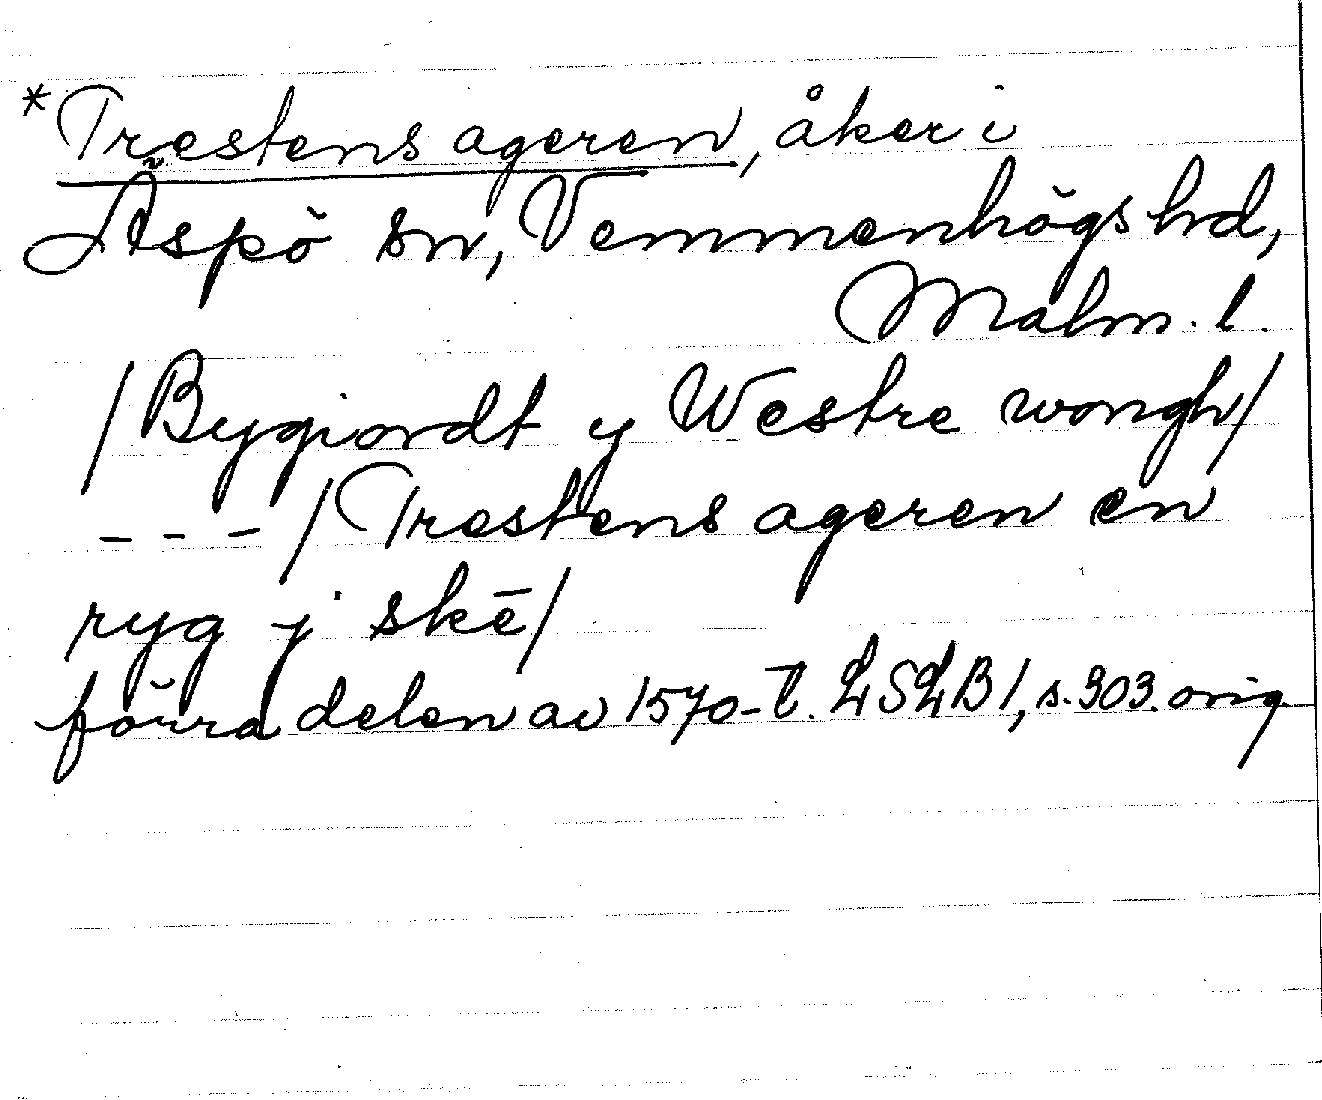 *Trestens ageren, åker i
Äspö sn, Vemmenhögs hd,
Malm. l.
/Bygiordt y Westre wongh/
- - - /Trestens ageren en
ryg j skē/
förra delen av 1570-t. LSLB 1, s. 303. orig